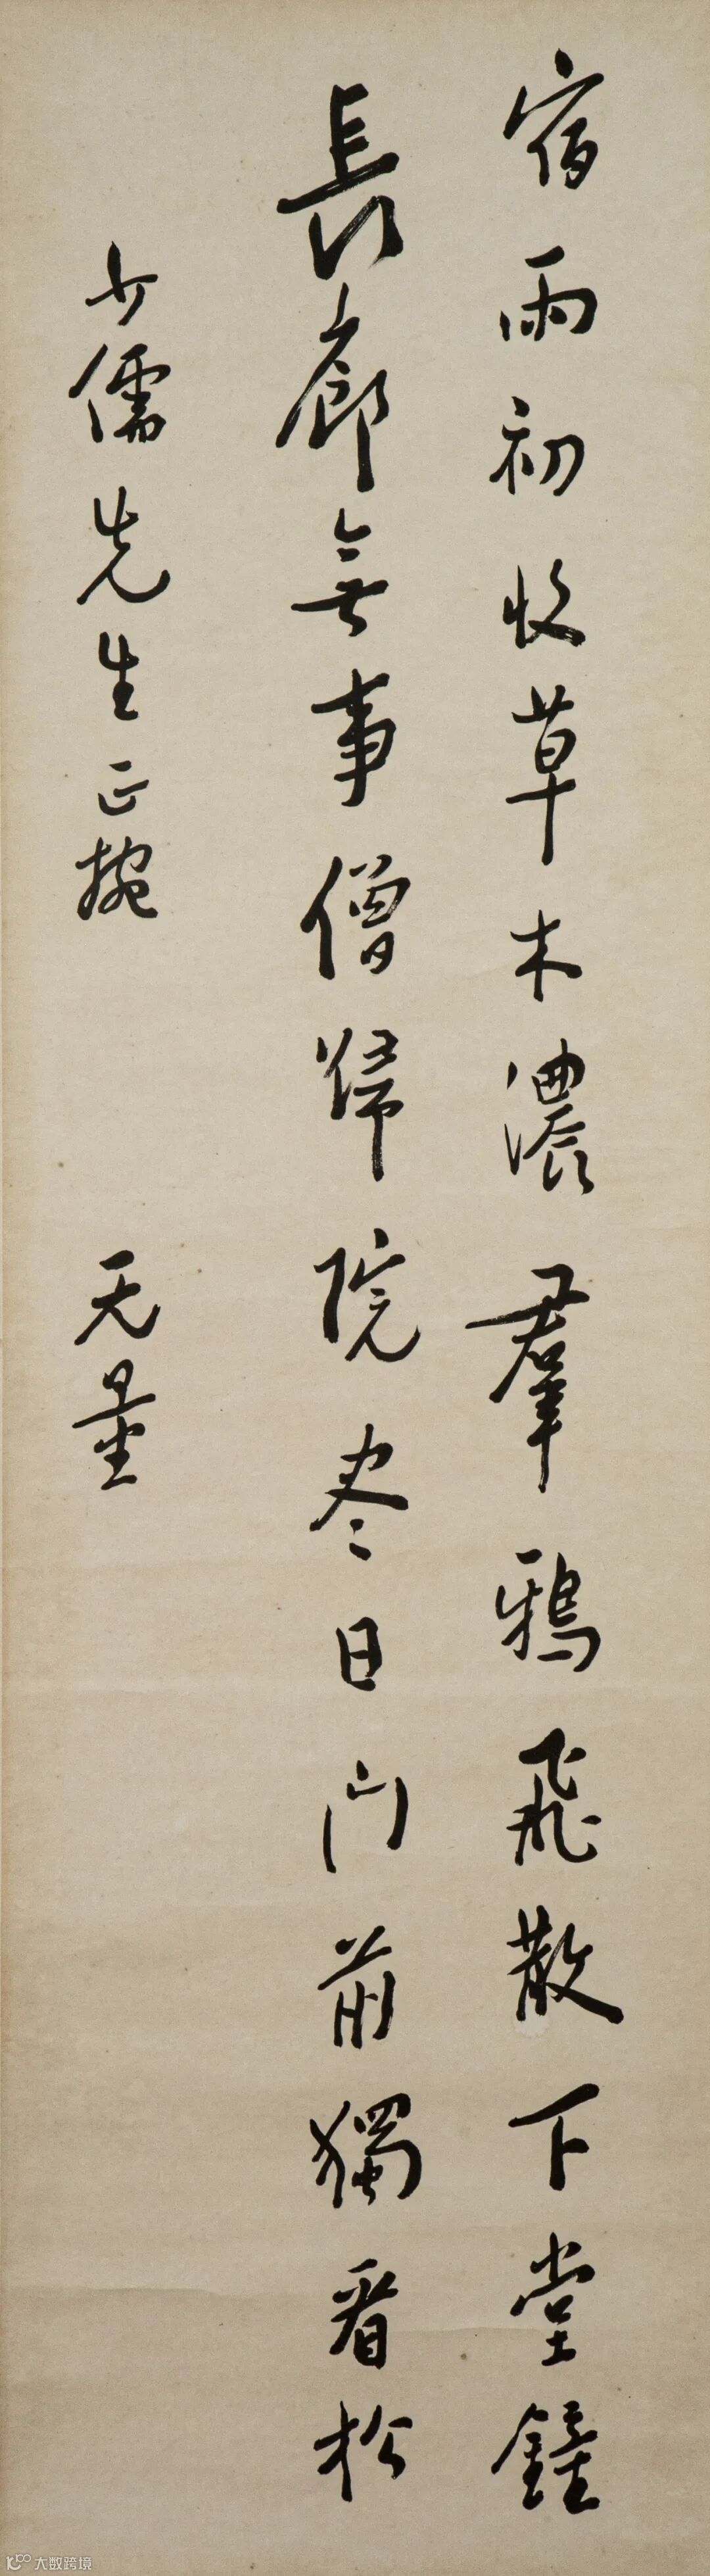 宿雨初收草木濃羣鴉飛散下堂鐘
長廊無事僧歸院尽日门前獨看松
少儒先生正捥
无量
大数跨境